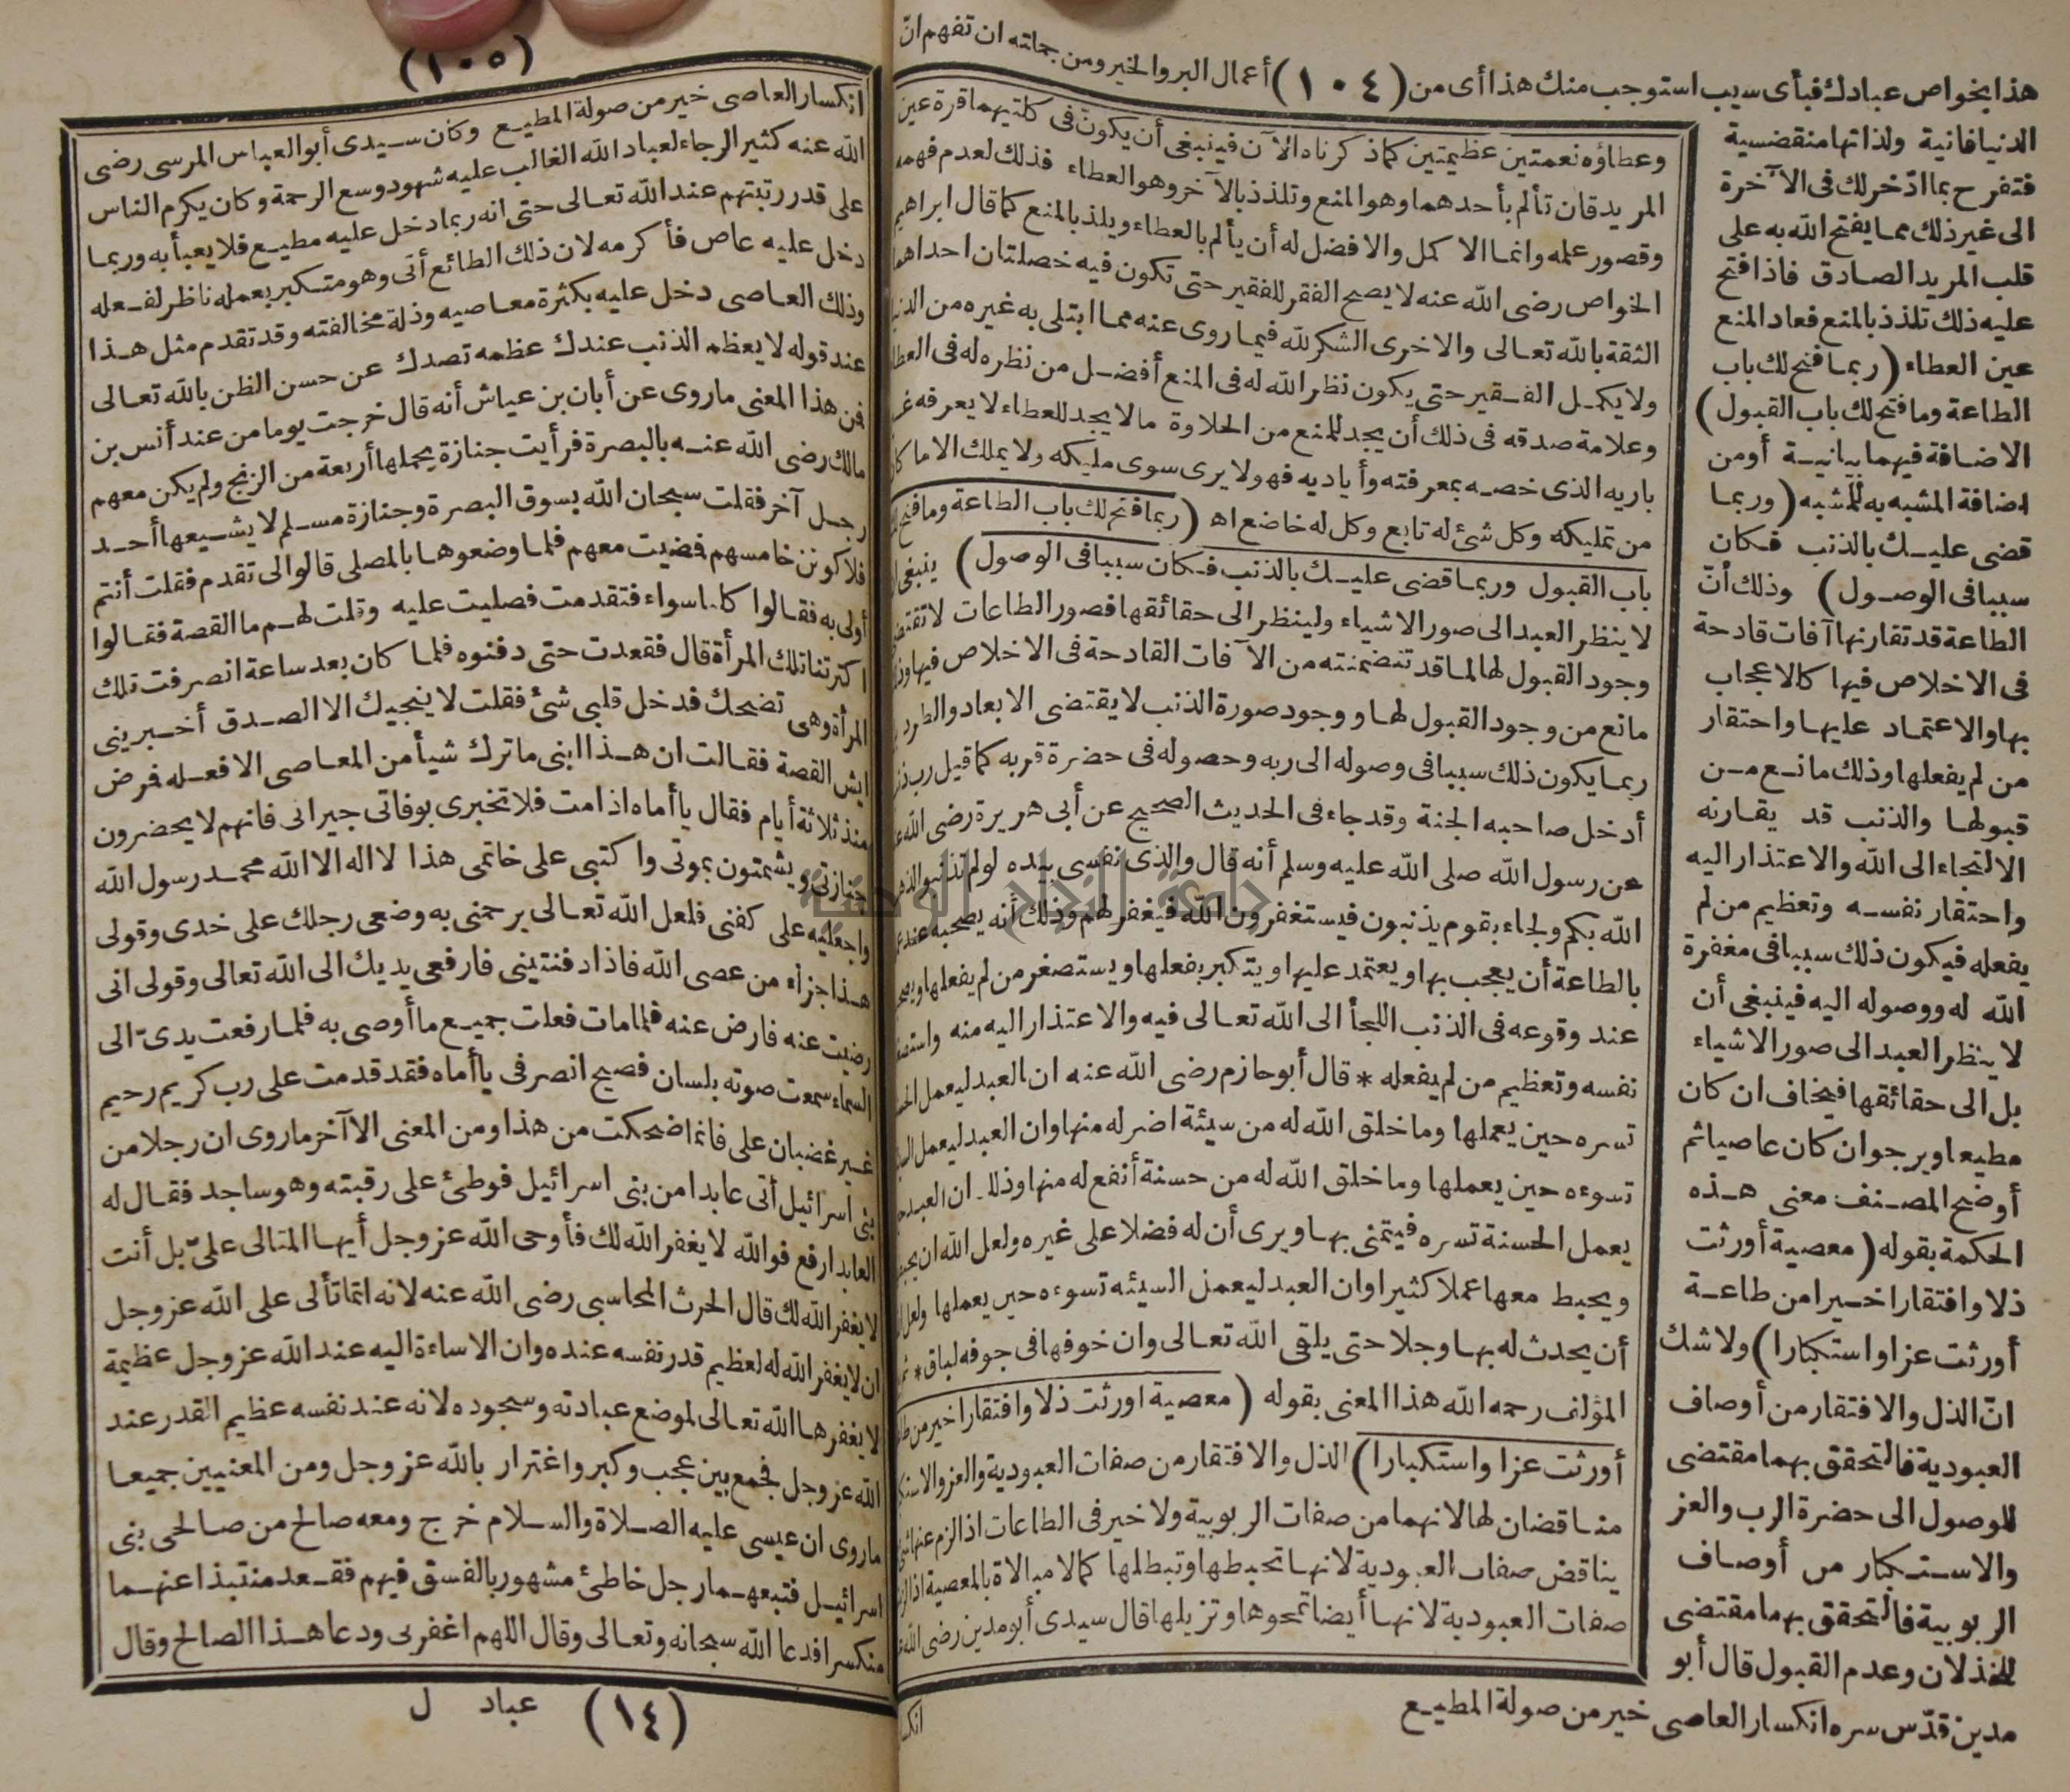 هذا بخواص عبادك فبأى سبب استوجب منك هذا أى من (١٠٤) أعمال البر والخير ومن جملته ان تفهم انّ
الدنيا فانية ولذاتها منقضية
فتفرح بما ادّخر لك فى الآخرة
الى غير ذلك مما يفتح الله به على
قلب المريد الصادق فاذا فتح
عليه ذلك تلذذ بالمنع فعاد المنع
عين العطاء (ربما فتح لك باب
الطاعة وما فتح لك باب القبول)
الاضافة فيهما بيانية أو من
اضافة المشبه به للمشبه (وربما
قضى عليك بالذنب فكان
سببا فى الوصول) وذلك أنّ
الطاعة قد تقارنها آفات قادحة
فى الاخلاص فيها كالاعجاب
بها والاعتماد عليها واحتقار
من لم يفعلها وذلك مانع من
قبولها والذنب قد يقارنه
الالتجاء الى الله والاعتذار اليه
واحتقار نفسه وتعظيم من لم
يفعله فيكون ذلك سببا فى مغفرة
الله له ووصوله اليه فينبغى أن
لا ينظر العبد الى صور الاشياء
بل الى حقائقها فيخاف ان كان
مطيعا ويرجو ان كان عاصيا ثم
أوضح المصنف معنى هذه
الحكمة بقوله (معصية أورثت
ذلا وافتقارا خيرا من طاعة
أورثت عزا واستكبارا) ولا شك
انّ الذل والافتقار من أوصاف
العبودية فالتحقق بهما مقتضى
للوصول الى حضرة الرب والعز
والاستكبار من أوصاف
الربوبية فالتحقق بهما مقتضى
للخذلان وعدم القبول قال أبو
مدين قدّس سره انكسار العاصى خير من صولة المطيع
وعطاؤه نعمتين عظيمتين كما ذكرناه الآن فينبغى أن يكون فى كلتيهما قرة عين
المريد فان تألم بأحدهما وهو المنع وتلذذ بالآخر وهو العطاء فذلك لعدم فهمه
وقصور علمه وانما الاكمل والافضل له أن يألم بالعطاء ويلذ بالمنع كما قال ابراهيم
الخواص رضى الله عنه لا يصح الفقر للفقير حتى تكون فيه خصلتان احداهما
الثقة بالله تعالى والاخرى الشكر لله فيما روى عنه مما ابتلى به غيره من الدنيا
ولا يكمل الفقير حتى يكون نظر الله له فى المنع أفضل من نظره له فى العطا
وعلامة صدقه فى ذلك أن يجد للمنع من الحلاوة مالا يجد للعطاء لا يعرفه غير
باريه الذى خصه بمعرفته وأياديه فهو لا يرى سوى مليكه ولا يملك الا ما كان
من تمليكه وكل شئ له تابع وكل له خاضع اه (ربما فتح لك باب الطاعة وما فتح
باب القبول وربما قضى عليك بالذنب فكان سببا فى الوصول) ينبغى
لا ينظر العبد الى صور الاشياء ولينظر الى حقائقها فصور الطاعات لا تقتضى
وجود القبول لها لما قد تتضمنته من الآفات القادحة فى الاخلاص فيها وذلك
مانع من وجود القبول لها ووجود صورة الذنب لا يقتضى الابعاد والطرد
ربما يكون ذلك سببا فى وصوله الى ربه وحصوله فى حضرة قربه كما قيل رب ذنب
أدخل صاحبه الجنة وقد جاء فى الحديث الصحيح عن أبى هريرة رضى الله
عن رسول الله صلى الله عليه وسلم أنه قال والذى نفسى بيده لو لم تذنبوا لذهب
الله بكم ولجاء بقوم يذنبون فيستغفرون الله فيغفر لهم وذلك أنه يصحبه عند
بالطاعة أن يعجب بها ويعتمد عليها ويتكبر بفعلها ويستصغر من لم يفعلها
عند وقوعه فى الذنب اللجأ الى الله تعالى فيه والاعتذار اليه منه
نفسه وتعظيم من لم يفعله * قال أبو حازم رضى الله عنه ان العبد ليعمل
تسره حين يعملها وما خلق الله له من سيئة اضر له منها وان العبد ليعمل
تسوءه حين يعملها وما خلق الله له من حسنة أنفع له منها وذلك ان العبد
يعمل الحسنة تسره فيتمنى بها ويرى أن له فضلا على غيره ولعل الله ان
ويحبط معها عملا كثيرا وان العبد ليعمل السيئة تسوءه حين يعملها ولعل
أن يحدث له بها وجلا حتى يلقى الله تعالى وان خوفها فى جوفه لباق *
المؤلف رحمه الله هذا المعنى بقوله (معصية اورثت ذلا وافتقارا خير من
أورثت عزا واستكبارا) الذل والافتقار من صفات العبودية والعز والاستكبار
مناقضان لها لانهما من صفات الربوبية ولا خير فى الطاعات اذا لزم عنها
يناقض صفات العبودية لانها تحبطها وتبطلها كما لا مبالاة بالمعصية
صفات العبودية لانها أيضا تمحوها وتزيلها قال سيدى أبو مدين رضى الله
(١٠٥)
انكسار العاصى خير من صولة المطيع وكان سيدى أبو العباس المرسى رضى
الله عنه كثير الرجاء لعباد الله الغالب عليه شهود وسع الرحمة وكان يكرم الناس
على قدر رتبتهم عند الله تعالى حتى انه ربما دخل عليه مطيع فلا يعبأ به وربما
دخل عليه عاص فأكرمه لان ذلك الطائع أتى وهو متكبر بعمله ناظر لفعله
وذلك العاصى دخل عليه بكثرة معاصيه وذلة مخالفته وقد تقدم مثل هذا
عند قوله لا يعظم الذنب عندك عظمه تصدك عن حسن الظن بالله تعالى
فمن هذا المعنى ما روى عن أبان بن عياش أنه قال خرجت يوما من عند أنس بن
مالك رضى الله عنه بالبصرة فرأيت جنازة يحملها أربعة من الزنج ولم يكن معهم
رجل آخر فقلت سبحان الله بسوق البصرة وجنازة مسلم لا يشيعها أحد
فلاكونن خامسهم فمضيت معهم فلما وضعوها بالمصلى قالوا لى تقدم فقلت أنتم
أولى به فقالوا كلنا سواء فتقدمت فصليت عليه وقلت لهم ما القصة فقالوا
اكترتنا تلك المرأة قال فقعدت حتى دفنوه فلما كان بعد ساعة انصرفت تلك
المرأة وهى تضحك فدخل قلبى شئ فقلت لا ينجيك الا الصدق أخبرينى
ايش القصة فقالت ان هذا ابنى ما ترك شيأ من المعاصى الا فعله فمرض
منذ ثلاثة أيام فقال يا أماه اذا مت فلا تخبرى بوفاتى جيرانى فانهم لا يحضرون
جنازتى ويشمتون بموتى واكتبى على خاتمى هذا لا اله الا الله محمد رسول الله
واجعليه على كفنى فلعل الله تعالى يرحمنى به وضعى رجلك على خدى وقولى
هذا جزاء من عصى الله فاذا دفنتينى فارفعى يديك الى الله تعالى وقولى انى
رضيت عنه فارض عنه فلما مات فعلت جميع ما أوصى به فلما رفعت يدىّ الى
السماء سمعت صوته بلسان فصيح انصرفى يا أماه فقد قدمت على رب كريم رحيم
غير غضبان على فانما ضحكت من هذا ومن المعنى الآخر ما روى ان رجلا من
بنى اسرائيل أتى عابدا من بنى اسرائيل فوطئ على رقبته وهو ساجد فقال له
العابد ارفع فوالله لا يغفر الله لك فأوحى الله عز وجل أيها المتالى علىّ بل أنت
لا يغفر الله لك قال الحرث المحاسبى رضى الله عنه لانه انما تألى على الله عز وجل
ان لا يغفر الله له لعظيم قدر نفسه عنده وان الاساءة اليه عند الله عز وجل عظيمة
لا يغفرها الله تعالى لموضع عبادته وسجوده لانه عند نفسه عظيم القدر عند
الله عز وجل فجمع بين عجب وكبر واغترار بالله عز وجل ومن المعنيين جميعا
ما روى ان عيسى عليه الصلاة والسلام خرج ومعه صالح من صالحى بنى
اسرائيل فتبعهما رجل خاطئ مشهور بالفسق فيهم فقعد منتبذا عنهما
منكسرا فدعا الله سبحانه وتعالى وقال اللهم اغفر لى ودعا هذا الصالح وقال
(١٤) عباد ل